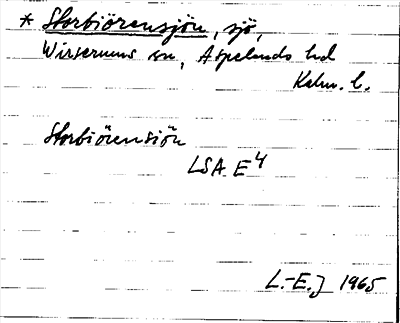 * Storbiörensjön, sjö,
Wirserums sn, Aspelands hd
Kalm. l.
Storbiörensiön
LSA E4
L.-E. J 1965